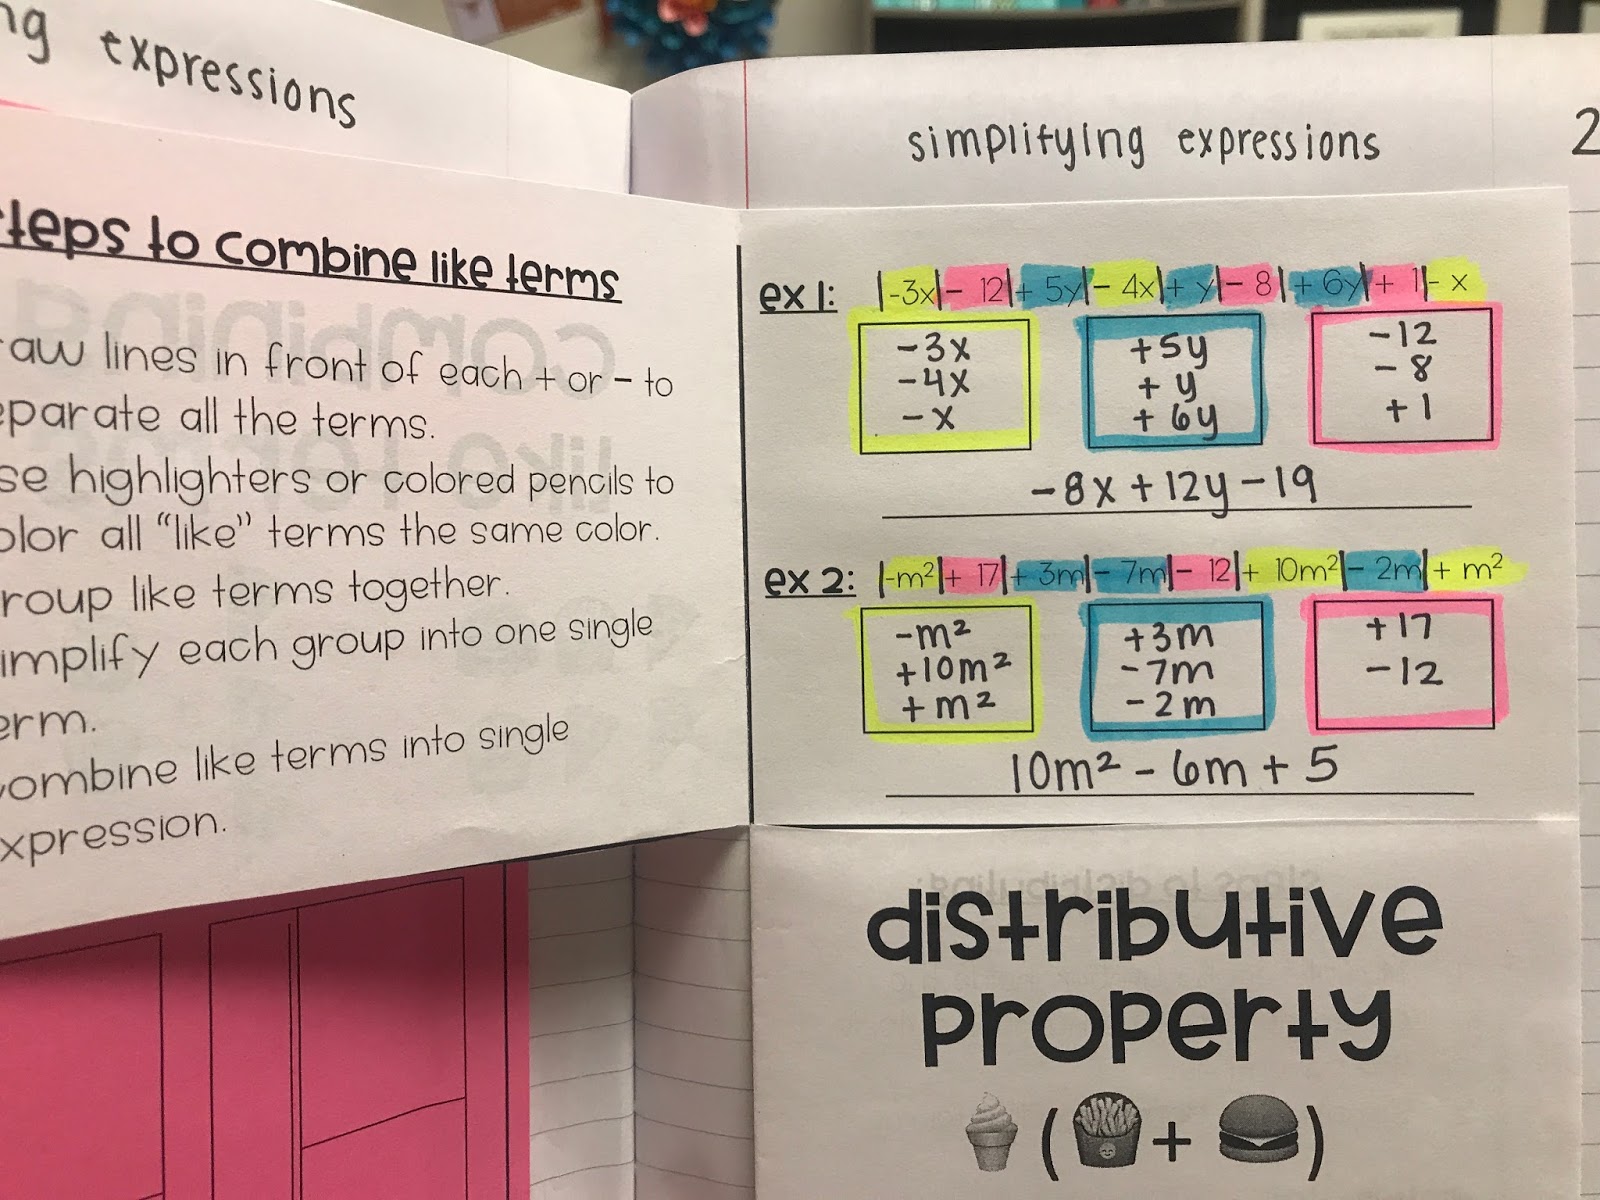 expressions
teps to combine like terms
aw lines in front of each + or - to
parate all the terms.
se highlighters or colored pencils to
olor all “like” terms the same color.
roup like terms together.
implify each group into one single
erm.
ombine like terms into single
xpression.
simplifying expressions
2
ex 1: |-3x|- 12|+ 5y|- 4x|+ y|- 8|+ 6y|+ 1|- x
-3x
-4x
-x
+5y
+ y
+ 6y
-12
- 8
+ 1
-8x + 12y - 19
ex 2: |-m²|+ 17|+ 3m|- 7m|- 12|+ 10m²|- 2m|+ m²
-m²
+10m²
+ m²
+3m
-7m
-2m
+17
-12
10m² - 6m + 5
distributive
property
( + )